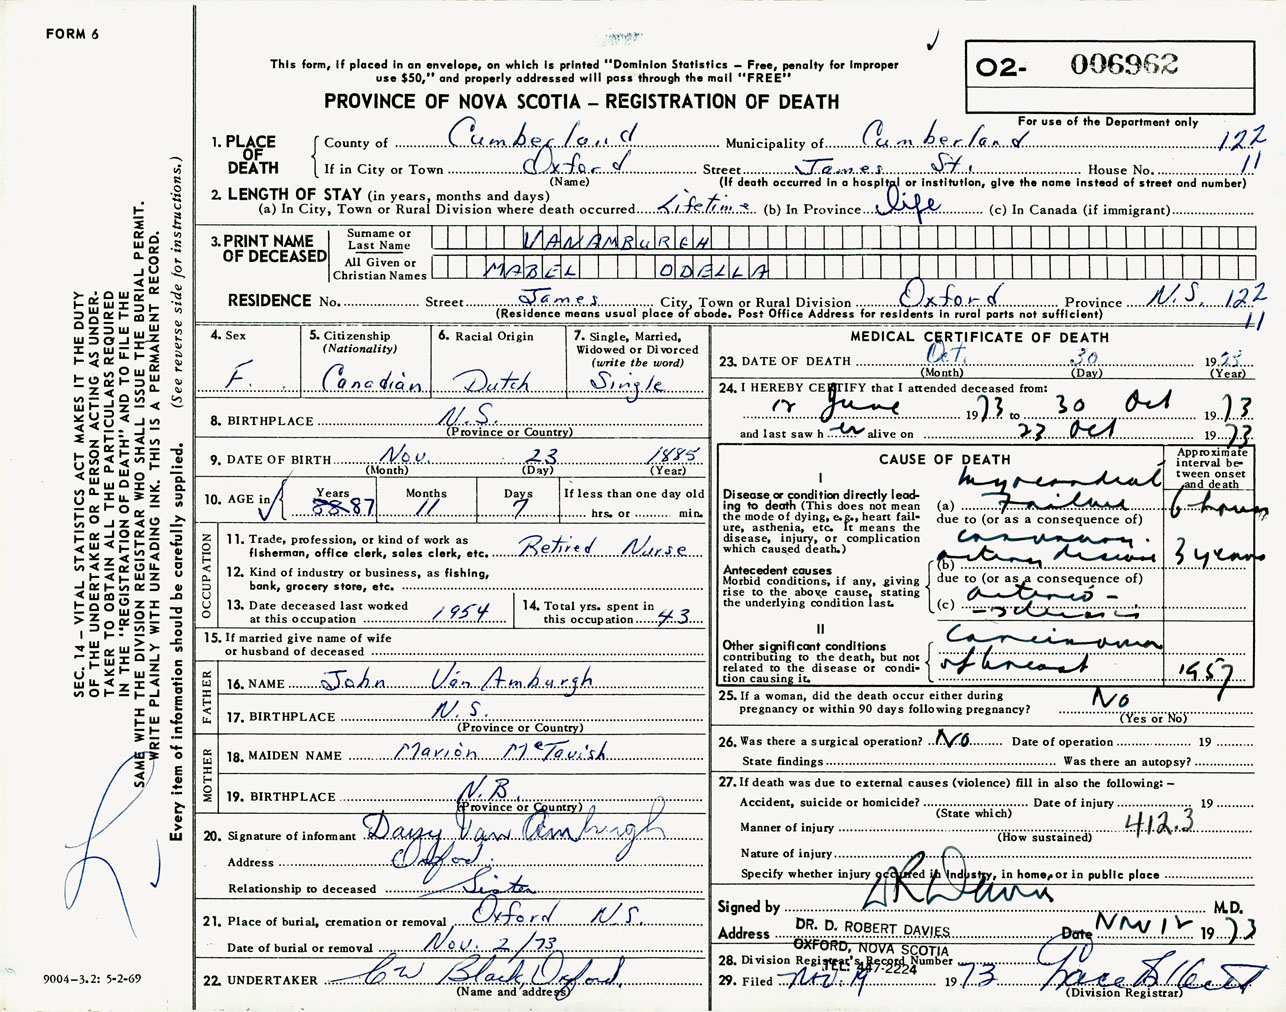 FORM 6
This form, if placed in an envelope, on which is printed "Dominion Statistics – Free, penalty for improper
use $50," and properly addressed will pass through the mail "FREE"
PROVINCE OF NOVA SCOTIA – REGISTRATION OF DEATH
O2- 006962
For use of the Department only
1. PLACE OF DEATH
County of Cumberland Municipality of Cumberland 122
If in City or Town Oxford Street James St. House No. 11
(Name) (If death occurred in a hospital or institution, give the name instead of street and number)
2. LENGTH OF STAY (in years, months and days)
(a) In City, Town or Rural Division where death occurred Lifetime (b) In Province life (c) In Canada (if immigrant)
3. PRINT NAME OF DECEASED
Surname or Last Name VANAMBURGH
All Given or Christian Names MABEL ODELLA
RESIDENCE No. Street James City, Town or Rural Division Oxford Province N.S. 122
(Residence means usual place of abode. Post Office Address for residents in rural parts not sufficient) 11
4. Sex F.
5. Citizenship (Nationality) Canadian
6. Racial Origin Dutch
7. Single, Married, Widowed or Divorced (write the word) Single
8. BIRTHPLACE N.S.
(Province or Country)
9. DATE OF BIRTH Nov. 23 1885
(Month) (Day) (Year)
10. AGE in Years 88 87 Months 11 Days 7 If less than one day old hrs. or min.
OCCUPATION
11. Trade, profession, or kind of work as
fisherman, office clerk, sales clerk, etc. Retired Nurse
12. Kind of industry or business, as fishing,
bank, grocery store, etc.
13. Date deceased last worked
at this occupation 1954
14. Total yrs. spent in
this occupation 43
15. If married give name of wife
or husband of deceased
FATHER
16. NAME John Van Amburgh
17. BIRTHPLACE N.S.
(Province or Country)
MOTHER
18. MAIDEN NAME Marion McTavish
19. BIRTHPLACE N.B.
(Province or Country)
20. Signature of informant Daisy Van Amburgh
Address Oxford.
Relationship to deceased Sister
21. Place of burial, cremation or removal Oxford N.S.
Date of burial or removal Nov. 2/73
22. UNDERTAKER C W Black, Oxford.
(Name and address)
MEDICAL CERTIFICATE OF DEATH
23. DATE OF DEATH Oct. 30 19
(Month) (Day) (Year)
24. I HEREBY CERTIFY that I attended deceased from:
12 June 1973 to 30 Oct 1973
and last saw her alive on 23 Oct 1973
CAUSE OF DEATH
Approximate interval between onset and death
I
Disease or condition directly lead-
ing to death (This does not mean
the mode of dying, e.g., heart fail-
ure, asthenia, etc. It means the
disease, injury, or complication
which caused death.)
(a) Myocardial Failure 6 hours
due to (or as a consequence of)
Antecedent causes
Morbid conditions, if any, giving
rise to the above cause, stating
the underlying condition last.
(b) coronary artery disease 3 years
due to (or as a consequence of)
(c) arterio-sclerosis
II
Other significant conditions
contributing to the death, but not
related to the disease or condi-
tion causing it.
Carcinoma of breast 1957
25. If a woman, did the death occur either during
pregnancy or within 90 days following pregnancy? No
(Yes or No)
26. Was there a surgical operation? No Date of operation 19
State findings Was there an autopsy?
27. If death was due to external causes (violence) fill in also the following: –
Accident, suicide or homicide? Date of injury 19
(State which)
Manner of injury 412.3
(How sustained)
Nature of injury
Specify whether injury occurred in Industry, in home, or in public place
Signed by D R Davies M.D.
Address DR. D. ROBERT DAVIES Date Nov 12 1973
OXFORD, NOVA SCOTIA
TEL: 447-2224
28. Division Registrar's Record Number
29. Filed Nov. 19 1973
(Division Registrar)
SEC. 14 – VITAL STATISTICS ACT MAKES IT THE DUTY
OF THE UNDERTAKER OR PERSON ACTING AS UNDER-
TAKER TO OBTAIN ALL THE PARTICULARS REQUIRED
IN THE "REGISTRATION OF DEATH" AND TO FILE THE
SAME WITH THE DIVISION REGISTRAR WHO SHALL ISSUE THE BURIAL PERMIT.
WRITE PLAINLY WITH UNFADING INK. THIS IS A PERMANENT RECORD.
Every item of information should be carefully supplied. (See reverse side for instructions.)
9004–3.2: 5-2-69